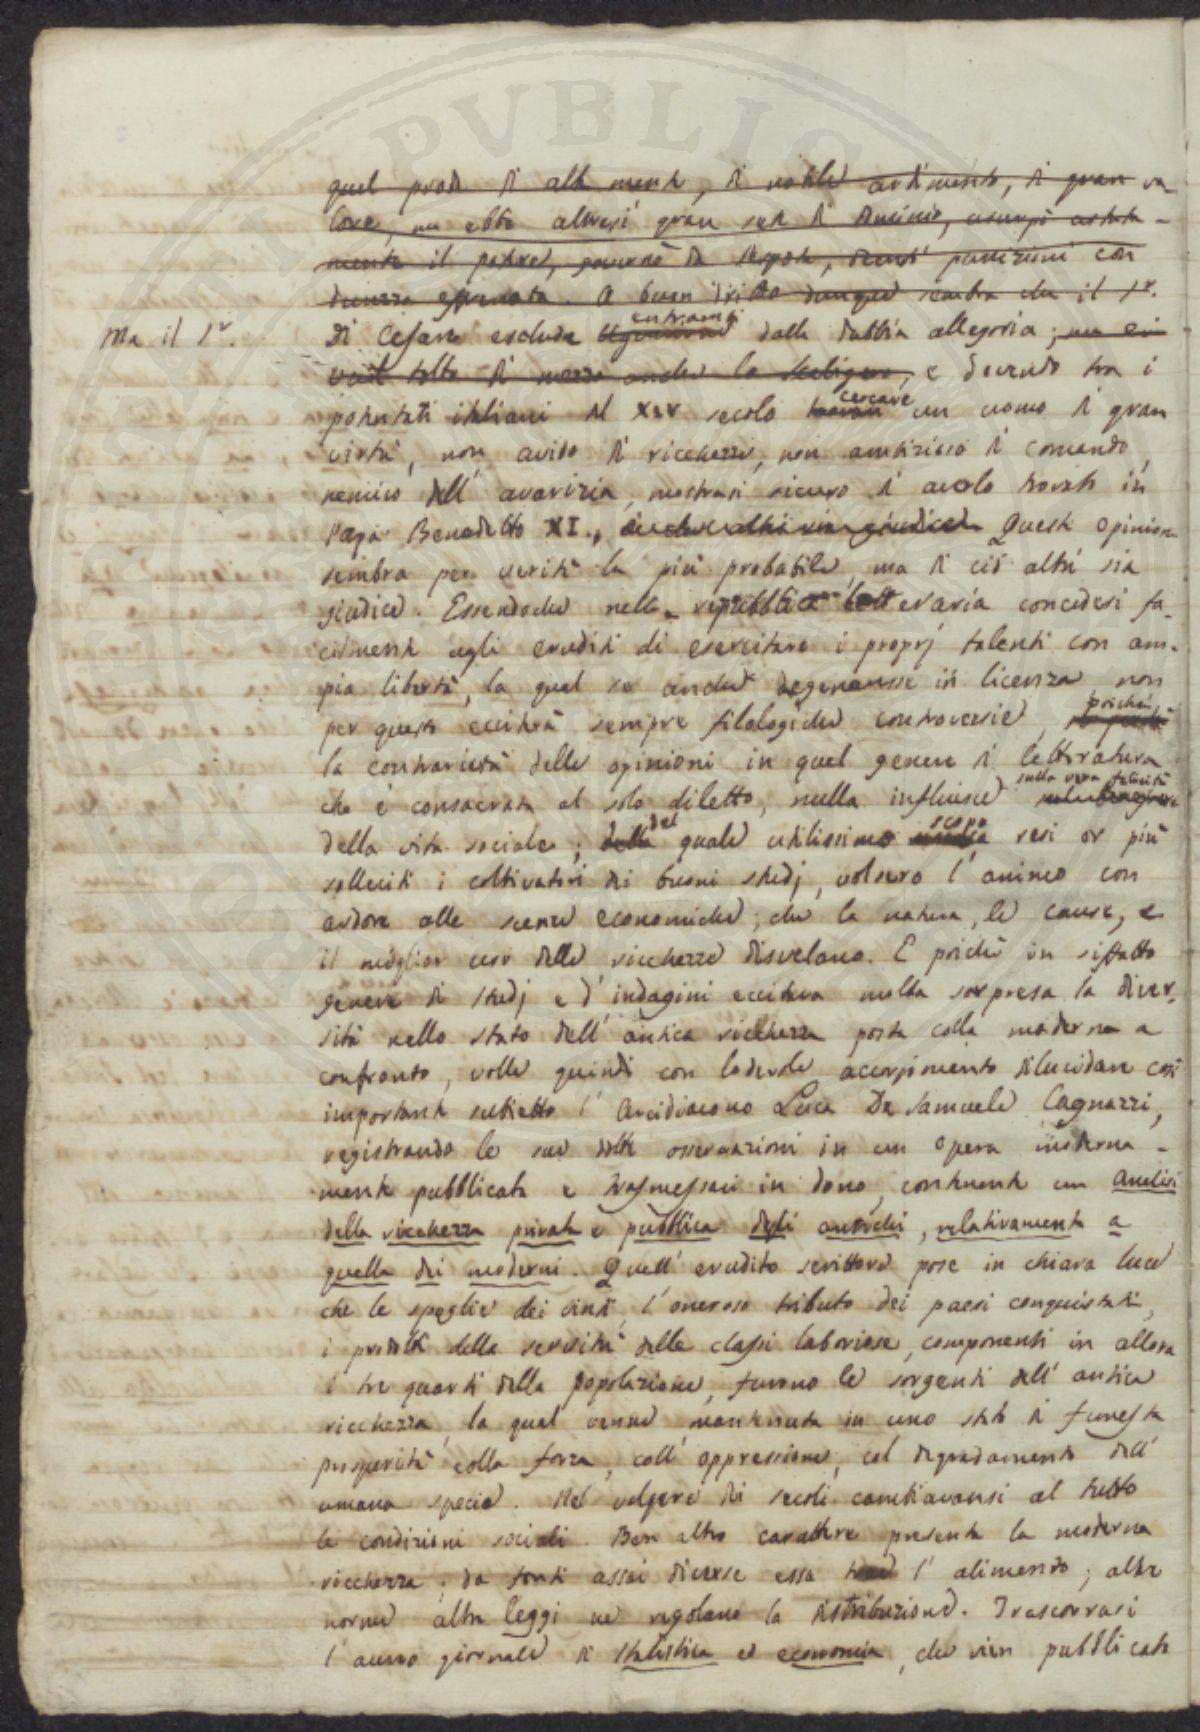 quel prode di alta mente, di nobile ardimento, di gran va-
lore, ma ebbe altresì gran sete di dominio, usurpò astuta-
mente il potere, governò da despota, punizioni con
durezza efferata. A buon dritto dunque sembra che il Sr.
Ma il Sr.
Di Cesare esclude entrambi dalla dubbia allegoria; ma ei
vuol tolto di mezzo anche lo Scaligero, e dovendo tra i
potentati italiani del XIV secolo cercare un uomo di gran
virtù, non avido di ricchezze, non ambizioso di comando,
nemico dell' avarizia, mostrasi sicuro di averlo trovato in
Papa Benedetto XI., Questa opinione
sembra per verità la più probabile, ma di ciò altri sia
giudice. Essendochè nella repubblica letteraria concedesi fa-
cilmente agli eruditi di esercitare i proprj talenti con am-
pia libertà, la qual se anche degenerasse in licenza non
per questo ecciterà sempre filologiche controversie, poichè
la contrarietà delle opinioni in quel genere di letteratura
che è consacrata al solo diletto, nulla influisce sulla vera felicità
della vita sociale; del quale utilissimo scopo resi or più
solleciti i coltivatori dei buoni studj, volsero l' animo con
ardore alle scienze economiche, che la natura, le cause, e
il miglior uso delle ricchezze disvelano. E poichè in siffatto
genere di studj e d' indagini eccitava molta sorpresa la diver-
sità nello stato dell' antica ricchezza posta colla moderna a
confronto, volle quindi con lodevole accorgimento dilucidare così
importante subietto l' Arcidiacono Luca De Samuele Cagnazzi,
registrando le sue dotte osservazioni in un opera modernа-
mente pubblicata e trasmessaci in dono, contenente un Analisi
della ricchezza privata e pubblica degli antichi, relativamente a
quella dei moderni. Quell' erudito scrittore pose in chiara luce
che le spoglie dei vinti, l' oneroso tributo dei paesi conquistati,
i prodotti della servitù delle classi laboriose, componenti in allora
i tre quarti della popolazione, furono le sorgenti dell' antica
ricchezza, la qual venne mantenuta in uno stato di funesta
prosperità colla forza, coll' oppressione, col degradamento dell'
umana specie. Nel volgere dei secoli cambiavansi al tutto
le condizioni sociali. Ben altro carattere presenta la moderna
ricchezza; da fonti assai diverse essa trae l' alimento; altre
norme altre leggi ne regolano la distribuzione. Trascorrasi
l' aureo giornale di statistica ed economia, che vien pubblicato